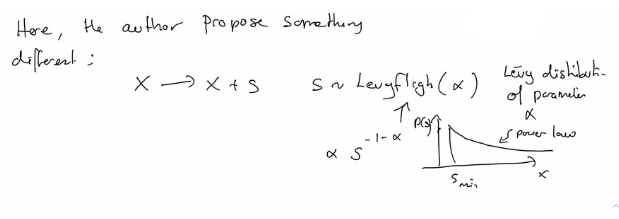 Here, the author propose something
different :
X → X + S
S ~ Levyfligh(α)
Lévy distibuti-
of parameter
α
P(s)
∝ S^{-1-α}
power law
S_{min}
x